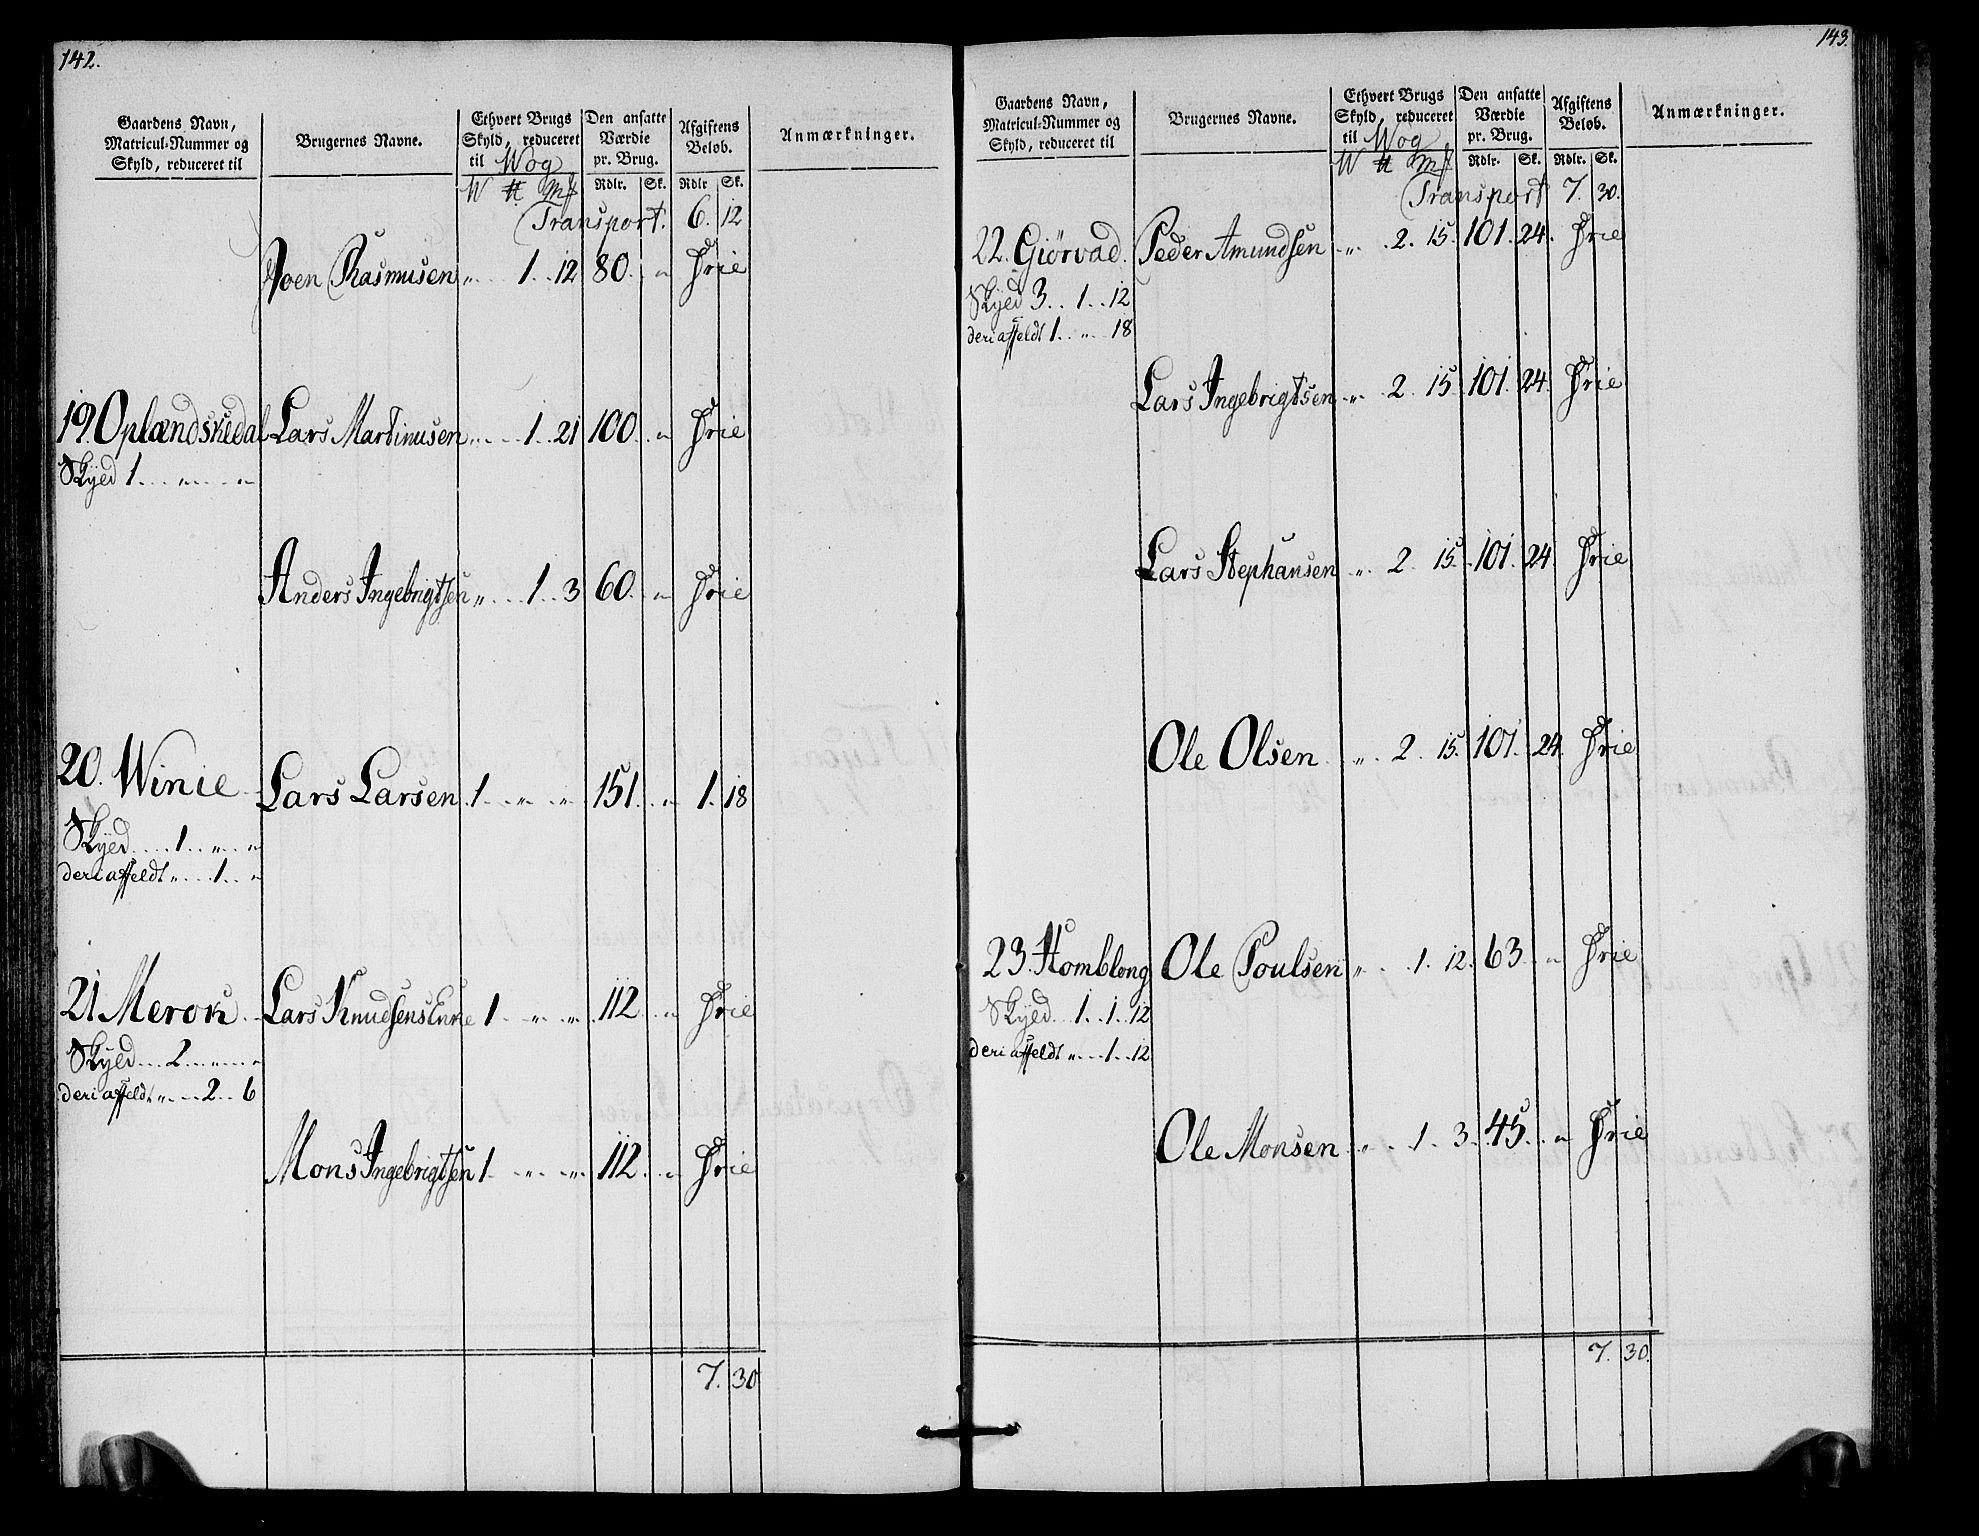 142.
Gaardens Navn, Matricul-Nummer og Skyld, reduceret til | Brugernes Navne. | Ethvert Brugs Skyld, reduceret til Wog W ℔ Mk | Den ansatte Værdie pr. Brug. Rdlr. Sk. | Afgiftens Beløb. Rdlr Sk. | Anmærkninger.
Transport. 6. 12
Joen Rasmusen „ 1. 12 80. „ Frie
19. Oplændskedal Lars Martinusen „ 1. 21 100. „ Frie
Skyld 1. „ „
Anders Ingebrigtsen „ 1. 3 60. „ Frie
20. Winie Lars Larsen 1. „ „ 151. „ 1. 18
Skyld 1. „ „
deri affeldt „ 1. „
21 Merok Lars Knudsens Enke 1 „ „ 112. „ Frie
Skyld 2. „ „
deri affeldt „ 2. 6
Mons Ingebrigtsen 1. „ „ 112. „ Frie
7. 30
143.
Gaardens Navn, Matricul-Nummer og Skyld, reduceret til | Brugernes Navne. | Ethvert Brugs Skyld, reduceret til Wog W ℔ Mk | Den ansatte Værdie pr. Brug. Rdlr. Sk. | Afgiftens Beløb. Rdlr. Sk. | Anmærkninger.
Transport 7. 30.
22. Giörvad. Peder Amundsen „ 2. 15. 101. 24. Frie
Skyld 3. 1. 12
deri affeldt 1. „ 18
Lars Ingebrigtsen „ 2. 15 101. 24. Frie
Lars Stephansen „ 2. 15. 101. 24 Frie
Ole Olsen „ 2. 15. 101. 24. Frie
23. Homblong Ole Poulsen „ 1. 12. 63. „ Frie
Skyld 1. 1. 12
deri affeldt „ 1. 12
Ole Monsen „ 1. 3. 45. „ Frie
7. 30.